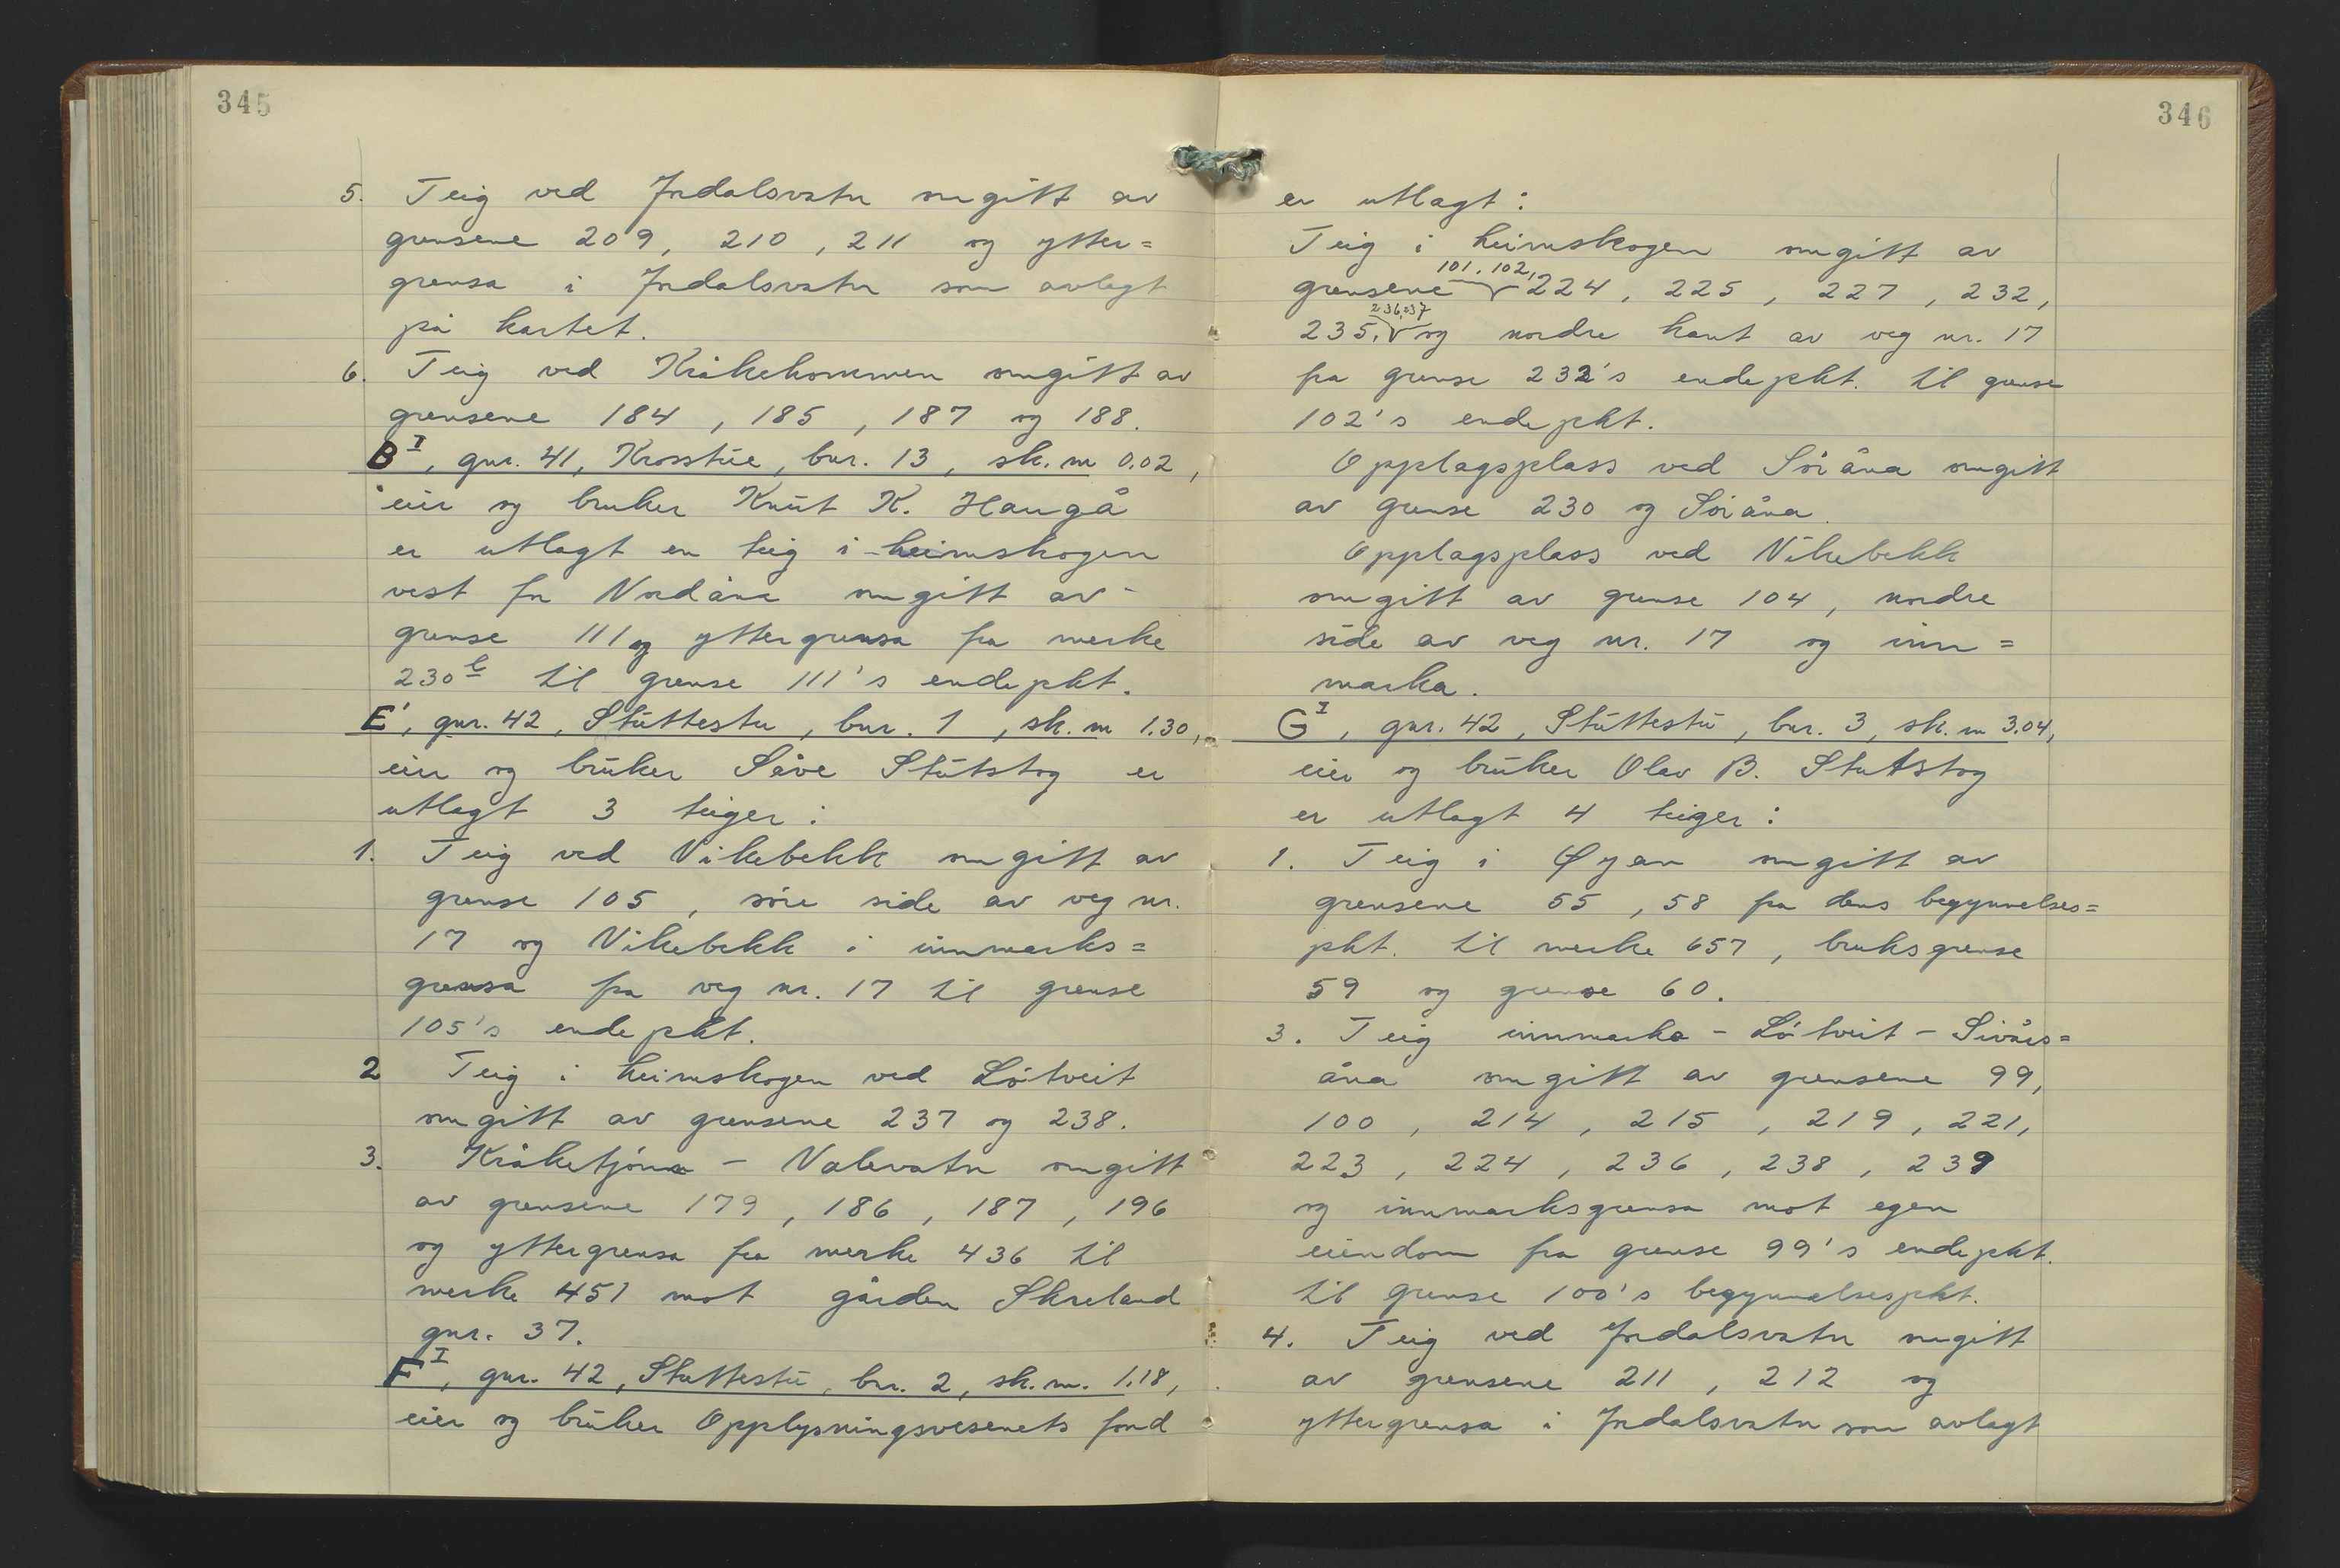 345
5. Teig ved Indalsvatn omgitt av
grensene 209, 210, 211 og ytter=
grensa i Indalsvatn som avlagt
på kartet.
6. Teig ved Kråkekommen omgitt av
grensene 184, 185, 187 og 188.
B I, gnr. 41, Krosstue, bnr. 13, sk. m 0.02,
eier og bruker Knut K. Haugå
er utlagt en teig i heimskogen
vest for Nordåna omgitt av
grense 111 og yttergrensa fra merke
230 b til grense 111's endepkt.
E', gnr. 42, Stuttestu, bnr. 1, sk. m 1.30,
eier og bruker Såve Stutstog er
utlagt 3 teiger:
1. Teig ved Vikebekk omgitt av
grense 105, søre side av veg nr.
17 og Vikebekk i innmarks=
grensa fra veg nr. 17 til grense
105's endepkt.
2 Teig i heimskogen ved Løtveit
omgitt av grensene 237 og 238.
3. Kråketjønn - Valevatn omgitt
av grensene 179, 186, 187, 196
og yttergrensa fra merke 436 til
merke 451 mot gården Skreland
gnr. 37.
F I, gnr. 42, Stuttestu, bnr. 2, sk. m. 1.18,
eier og bruker Opplysningsvesenets fond
346
er utlagt:
Teig i heimskogen omgitt av
101, 102,
grensene 224, 225, 227, 232,
236, 237
235, og nordre kant av veg nr. 17
fra grense 232's endepkt. til grense
102's endepkt.
Opplagsplass ved Söråna omgitt
av grense 230 og Söråna.
Opplagsplass ved Vikebekk
omgitt av grense 104, nordre
side av veg nr. 17 og inn=
marka.
G I, gnr. 42, Stuttestu, bnr. 3, sk. m 3.04,
eier og bruker Olav B. Stutstog
er utlagt 4 teiger:
1. Teig i Øyan omgitt av
grensene 55, 58 fra dens begynnelses=
pkt. til merke 657, bruksgrense
59 og grense 60.
3. Teig innmarka - Løtveit - Sivårs=
åna omgitt av grensene 99,
100, 214, 215, 219, 221,
223, 224, 236, 238, 239
og innmarksgrensa mot egen
eiendom fra grense 99's endepkt.
til grense 100's begynnelsespkt.
4. Teig ved Indalsvatn omgitt
av grensene 211, 212 og
yttergrensa i Indalsvatn som avlagt